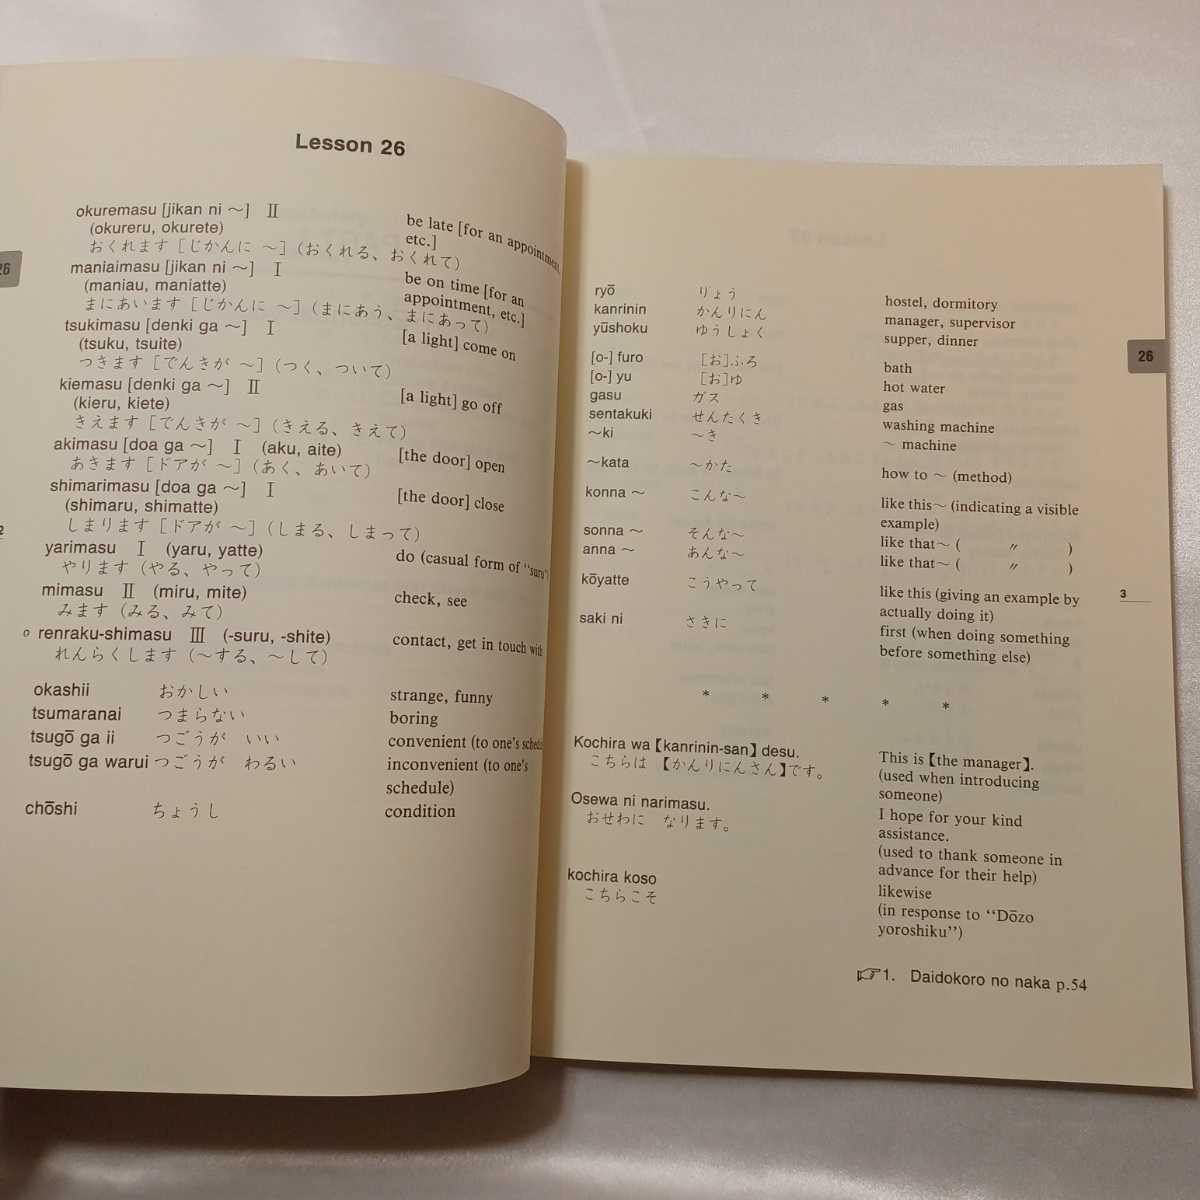 Lesson 26
26
okuremasu [jikan ni ～] Ⅱ be late [for an appointment,
(okureru, okurete) etc.]
おくれます［じかんに ～］（おくれる、おくれて）
maniaimasu [jikan ni ～] Ⅰ be on time [for an
(maniau, maniatte) appointment, etc.]
まにあいます［じかんに ～］（まにあう、まにあって）
tsukimasu [denki ga ～] Ⅰ [a light] come on
(tsuku, tsuite)
つきます［でんきが ～］（つく、ついて）
kiemasu [denki ga ～] Ⅱ [a light] go off
(kieru, kiete)
きえます［でんきが ～］（きえる、きえて）
akimasu [doa ga ～] Ⅰ (aku, aite) [the door] open
あきます［ドアが ～］（あく、あいて）
shimarimasu [doa ga ～] Ⅰ [the door] close
(shimaru, shimatte)
しまります［ドアが ～］（しまる、しまって）
2
yarimasu Ⅰ (yaru, yatte) do (casual form of "suru")
やります（やる、やって）
mimasu Ⅱ (miru, mite) check, see
みます（みる、みて）
○ renraku-shimasu Ⅲ (-suru, -shite) contact, get in touch with
れんらくします（～する、～して）
okashii おかしい strange, funny
tsumaranai つまらない boring
tsugō ga ii つごうが いい convenient (to one's
tsugō ga warui つごうが わるい inconvenient (to one's
schedule)
chōshi ちょうし condition
ryō りょう hostel, dormitory
kanrinin かんりにん manager, supervisor
yūshoku ゆうしょく supper, dinner
[o-] furo [お]ふろ bath
[o-] yu [お]ゆ hot water
gasu ガス gas
sentakuki せんたくき washing machine
～ki ～き ～ machine
～kata ～かた how to ～ (method)
konna ～ こんな～ like this～ (indicating a visible
example)
sonna ～ そんな～ like that～ ( 〃 )
anna ～ あんな～ like that～ ( 〃 )
kōyatte こうやって like this (giving an example by
actually doing it)
saki ni さきに first (when doing something
before something else)
26
3
* * * * *
Kochira wa【kanrinin-san】desu. This is【the manager】.
こちらは 【かんりにんさん】です。 (used when introducing
someone)
Osewa ni narimasu. I hope for your kind
おせわに なります。 assistance.
(used to thank someone in
advance for their help)
kochira koso likewise
こちらこそ (in response to "Dōzo
yoroshiku")
☞1. Daidokoro no naka p.54